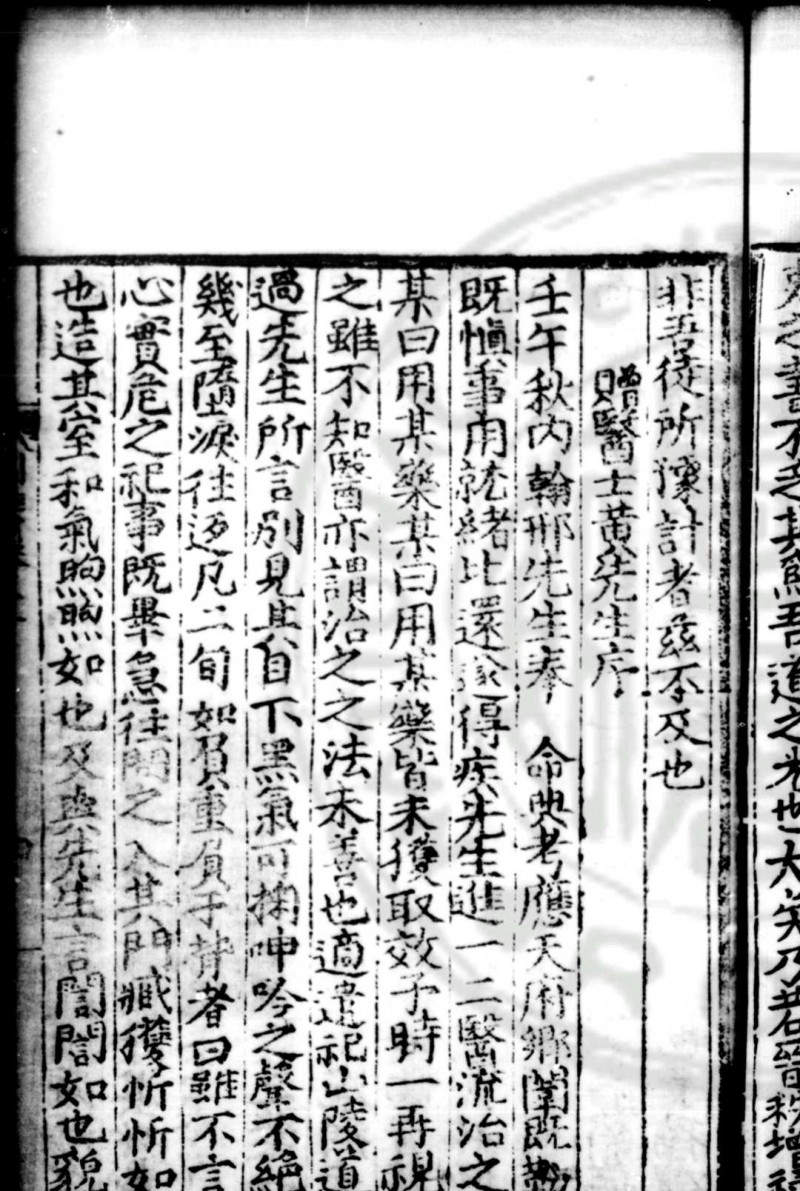 東之書不足其無吾道之光也大矣乃若留
非吾徒所據計者茲不及也
贈醫士黃先生序
壬午秋內翰邢先生奉 命典考應天府鄉闈既
既愼事用就緒比還遂得疾先生進一二醫流治之
某曰用某藥某曰用某藥皆未獲取效予時一再視
之雖不知醫亦謂治之之法未善也適遣祀山陵道
過先生所言別見其自下黑氣可掬呻吟之聲不絕
幾至墮淚往返凡二旬如負重負于背者口雖不言
心實危之祀事既畢急往問之入其門臧獲忻忻如
也造其室和氣煦煦如也及與先生言誾誾如也貌